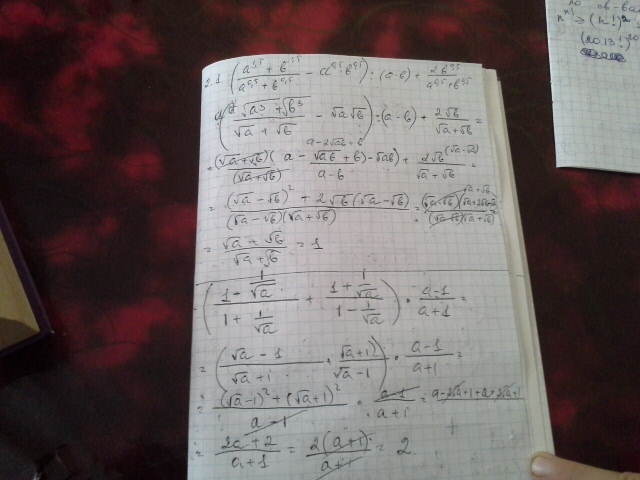 2.1 ( (a^1,5 + b^1,5)/(a^0,5 + b^0,5) - a^0,5 b^0,5 ) : (a-b) + 2b^0,5/(a^0,5 + b^0,5)
( (√a³ + √b³)/(√a + √b) - √a√b ) : (a-b) + 2√b/(√a+√b) =
a-2√ab+b
= (√a+√b)(a - √ab + b) - √ab)/(√a+√b) a-b + 2√b (√a-√b)/(√a+√b) =
= ((√a-√b)² + 2√b(√a-√b))/((√a-√b)(√a+√b)) =
= (√a + √b)/(√a+√b) = 1
( (1 - 1/√a)/(1 + 1/√a) + (1 + 1/√a)/(1 - 1/√a) ) · (a-1)/(a+1) =
= ( (√a - 1)/(√a + 1) + (√a+1)/(√a-1) ) · (a-1)/(a+1) =
= ((√a-1)² + (√a+1)²)/(a-1) · (a-1)/(a+1) = a-2√a+1+a+2√a+1
= (2a+2)/(a+1) = 2(a+1)/(a+1) = 2
(n!)²
(2013!)